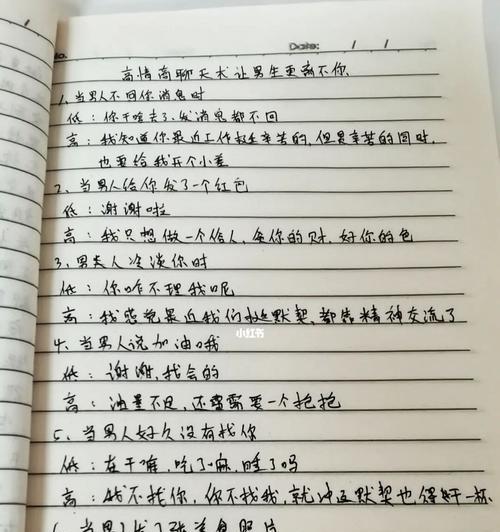 No.
Date: / /
高情商聊天术让男生更离不你
1、当男人不回你消息时
低：你干啥去了？发消息都不回
高：我知道你最近工作挺辛苦的，但是辛苦的同时，
也要给我开个小差
2、当男人给你发了一个红包
低：谢谢啦
高：我只想做一个俗人，贪你的财，好你的色
3、男夫人冷淡你时
低：你咋不理我呢
高：我感觉最近我们挺默契，都靠精神交流了
小红书
4、当男人说加油哦
低：谢谢，我会的
高：油量不足，还需要一个抱抱
5、当男人好久没有找你
低：在干嘛，吃了嘛，睡了吗
高：我不找你，你不找我，就冲这默契也得好一杯